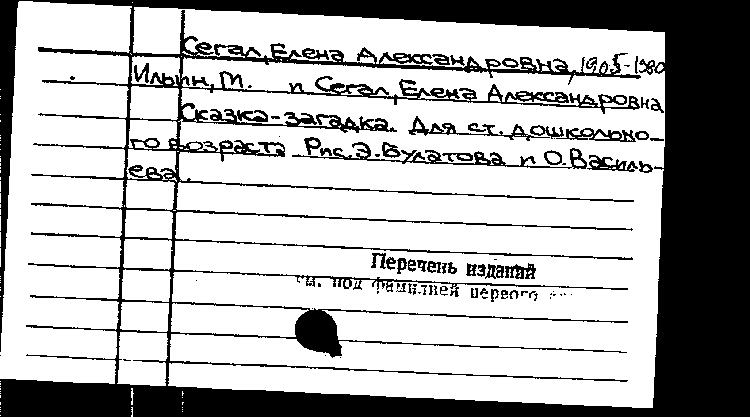 Сегал, Елена Александровна, 1905-1980
Ильин, М. и Сегал, Елена Александровна
Сказка-загадка. Для ст. дошкольно-
го возраста Рис. Э. Булатова и О. Василь-
ева.
Перечень изданий
см. под фамилией первого